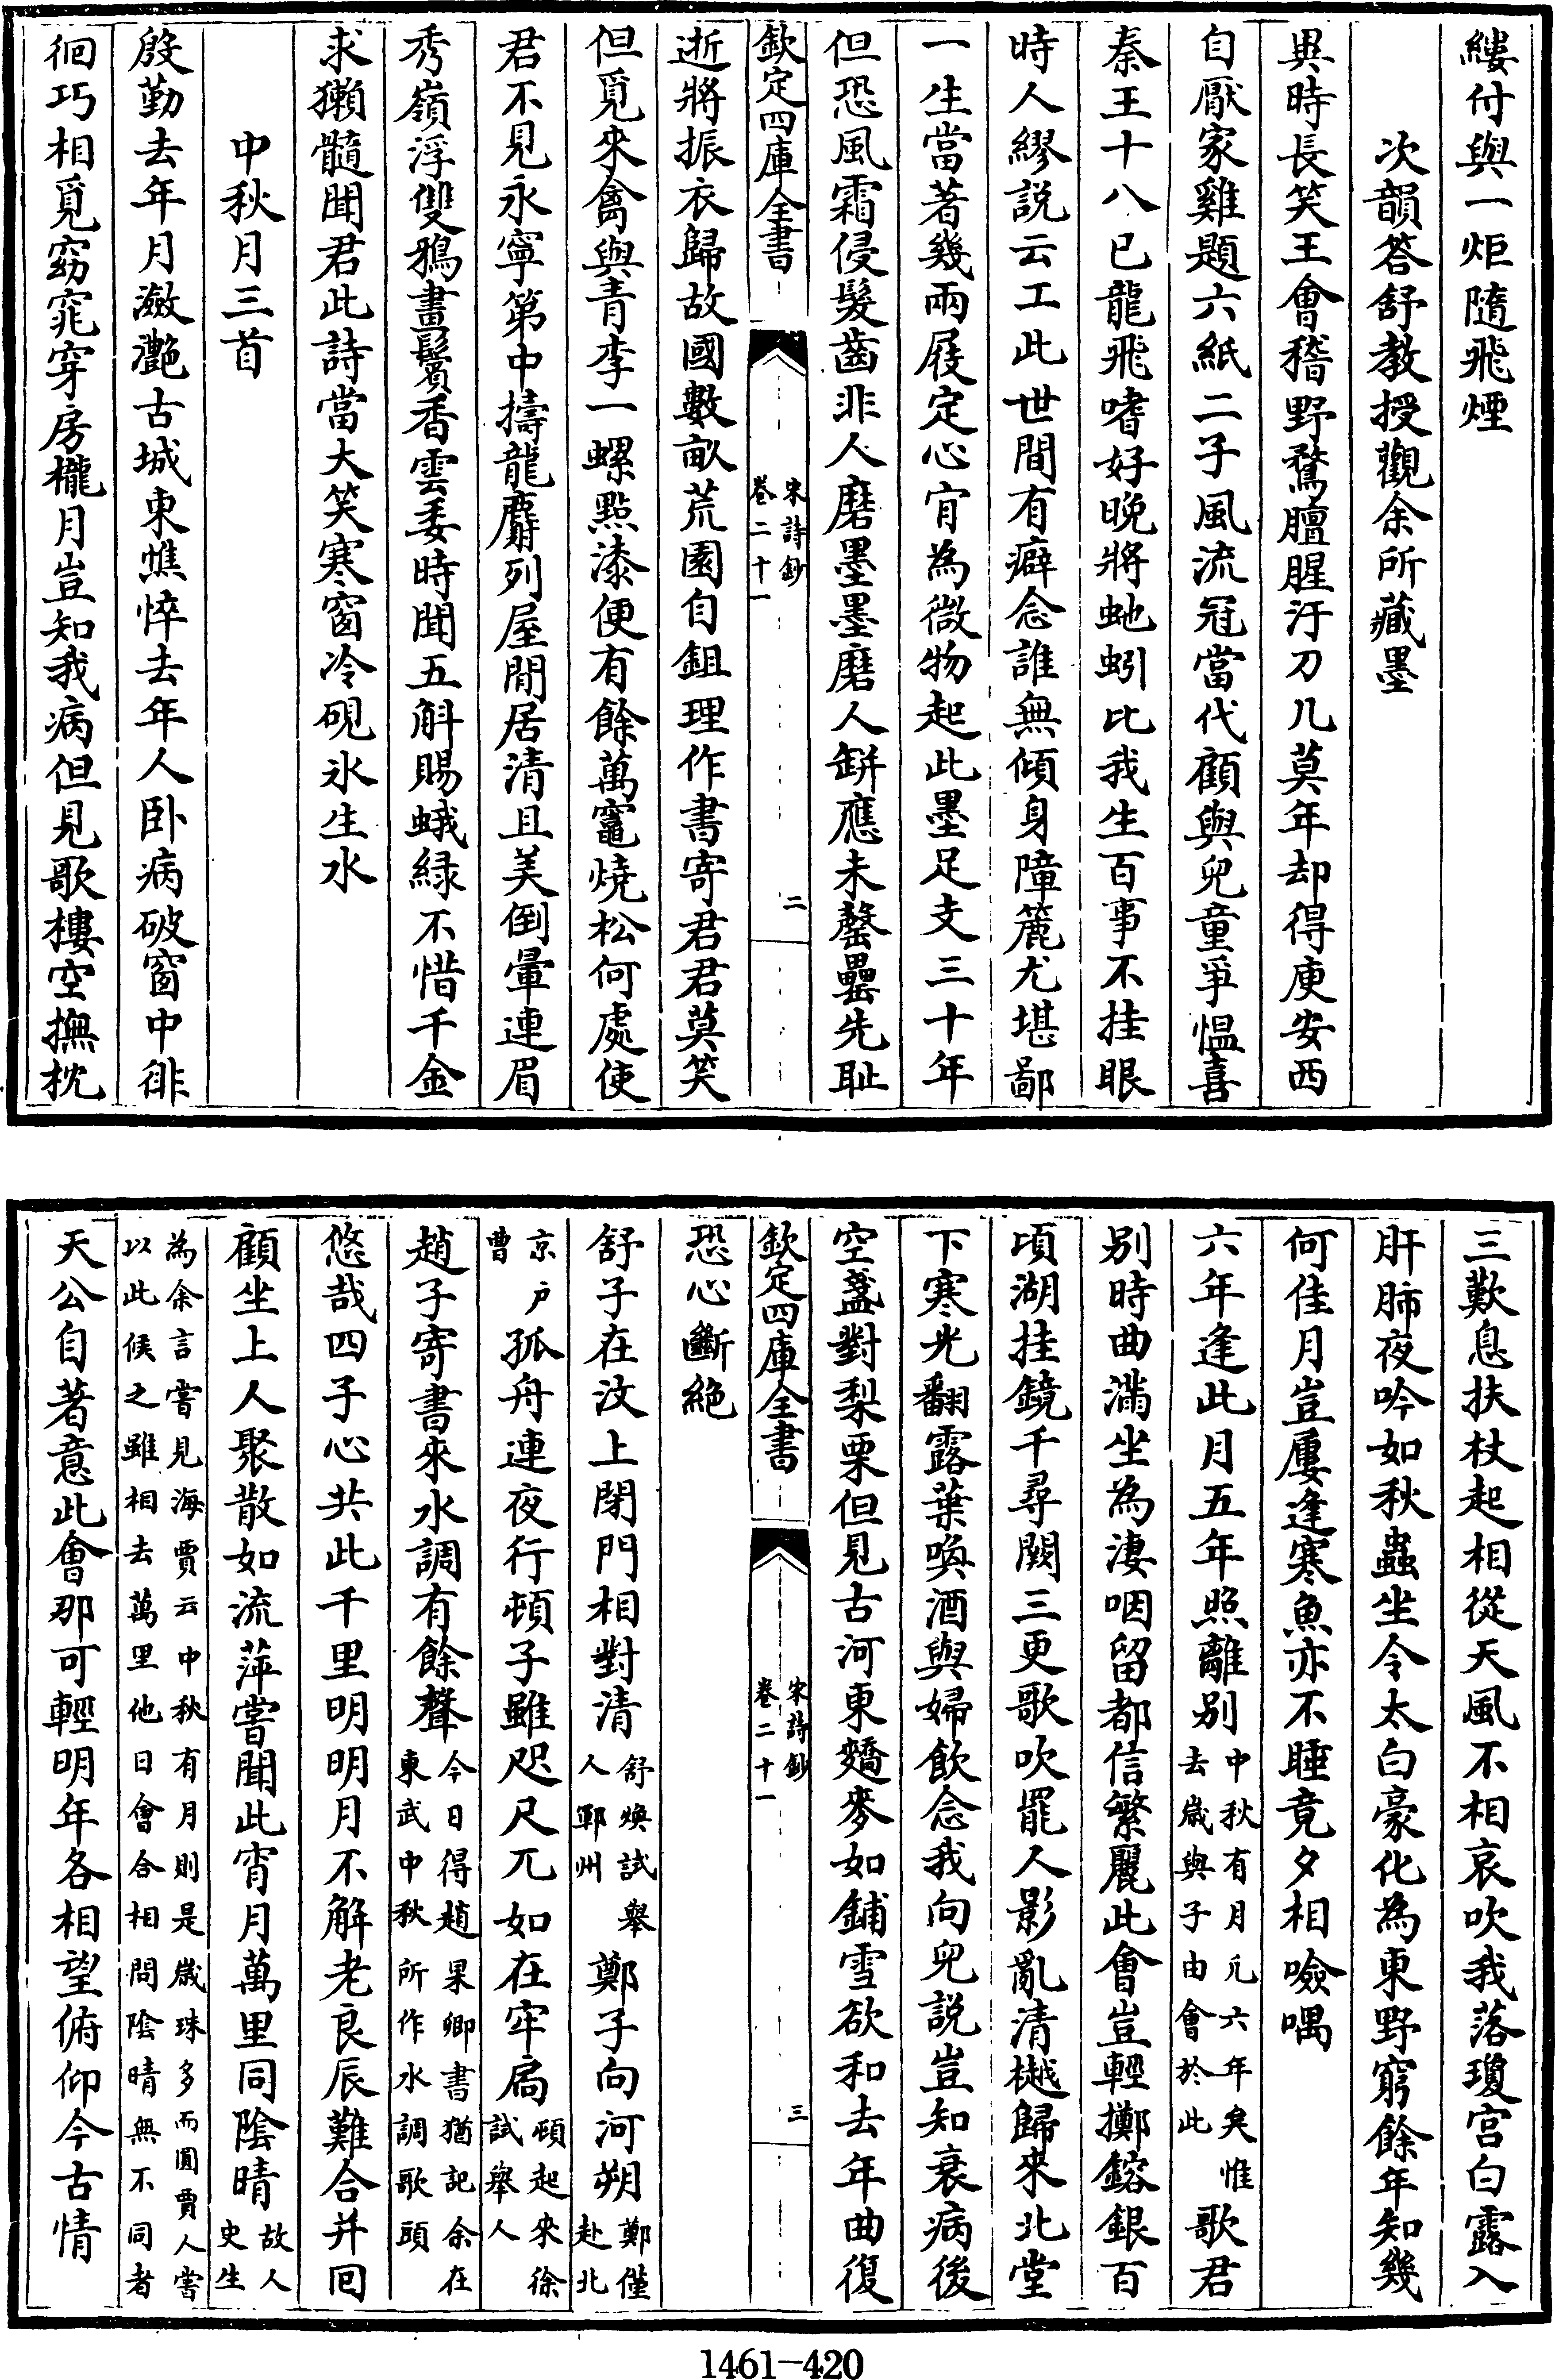 縷付與一炬隨飛煙
次韻答舒教授觀余所藏墨
異時長笑王會稽野鶩膻腥汙刀几莫年却得庾安西
自厭家雞題六紙二子風流冠當代顧與兒童爭慍喜
秦王十八已龍飛嗜好晚將蛇蚓比我生百事不挂眼
時人繆説云工此世間有癖念誰無傾身障簏尤堪鄙
一生當著幾兩屐定心肯為微物起此墨足支三十年
但恐風霜侵髮齒非人磨墨墨磨人缾應未罄罍先耻
欽定四庫全書
宋詩鈔
卷二十一
二
逝將振衣歸故國數畝荒園自鉏理作書寄君君莫笑
但覓來禽與青李一螺點漆便有餘萬竈燒松何處使
君不見永寧第中擣龍麝列屋閒居清且美倒暈連眉
秀嶺浮雙鴉畫鬢香雲委時聞五斛賜蛾綠不惜千金
求獺髓聞君此詩當大笑寒窗冷硯氷生水
中秋月三首
殷勤去年月瀲灩古城東憔悴去年人卧病破窗中徘
徊巧相覓窈窕穿房櫳月豈知我病但見歌樓空撫枕
三歎息扶杖起相從天風不相哀吹我落瓊宮白露入
肝肺夜吟如秋蟲坐令太白豪化為東野窮餘年知幾
何佳月豈屢逢寒魚亦不睡竟夕相噞喁
六年逢此月五年照離别中秋有月凡六年矣惟去歲與子由會於此歌君
别時曲滿坐為淒咽留都信繁麗此會豈輕擲鎔銀百
頃湖挂鏡千尋闕三更歌吹罷人影亂清樾歸來北堂
下寒光翻露葉喚酒與婦飲念我向兒説豈知衰病後
空盞對梨栗但見古河東蕎麥如鋪雪欲和去年曲復
欽定四庫全書
宋詩鈔
卷二十一
三
恐心斷絶
舒子在汶上閉門相對清舒煥試舉人鄆州鄭子向河朔鄭僅赴北
京戶曹孤舟連夜行頓子雖咫尺兀如在牢扃頓起來徐試舉人
趙子寄書來水調有餘聲今日得趙杲卿書猶記余在東武中秋所作水調歌頭
悠哉四子心共此千里明明月不解老良辰難合并回
顧坐上人聚散如流萍嘗聞此宵月萬里同陰晴故人史生
為余言嘗見海賈云中秋有月則是歲珠多而圓賈人嘗以此候之雖相去萬里他日會合相問陰晴無不同者
天公自著意此會那可輕明年各相望俯仰今古情
1461-420